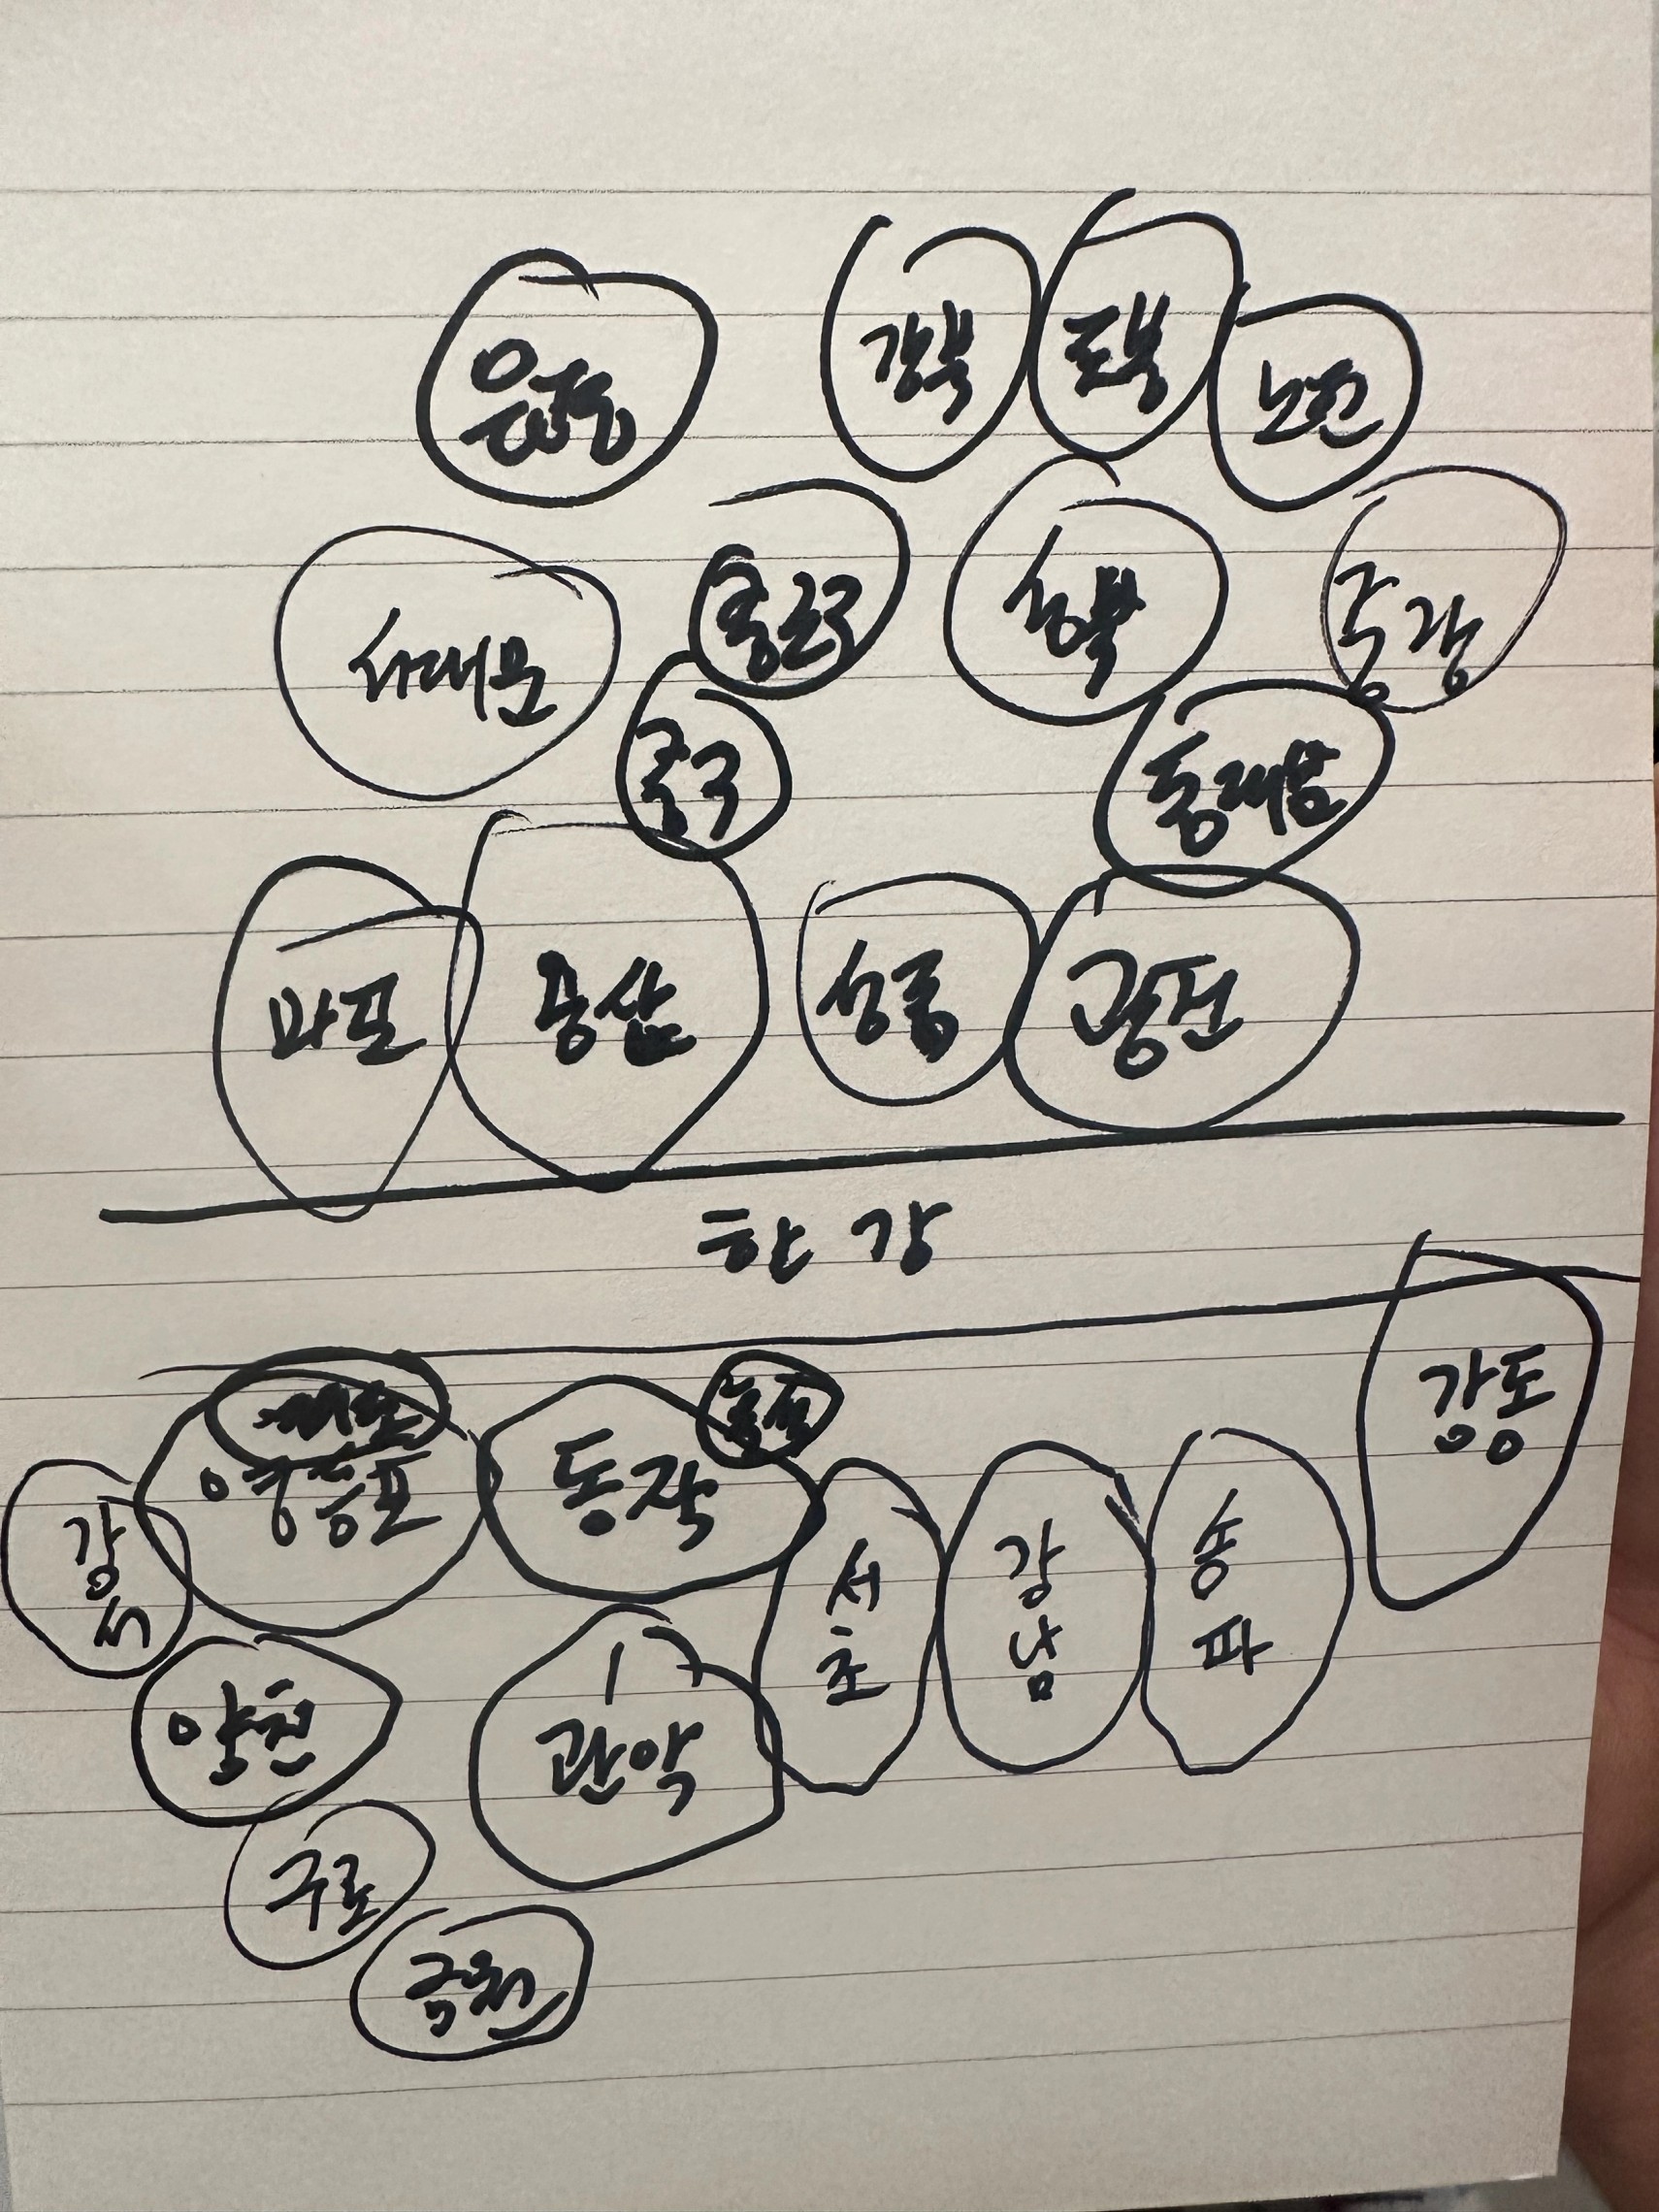 은평
강북
도봉
노원
서대문
종로구
성북
중랑
중구
동대문
마포
용산
성동
광진
한강
강동
영등포
동작
강서
서초
강남
송파
양천
관악
구로
금천